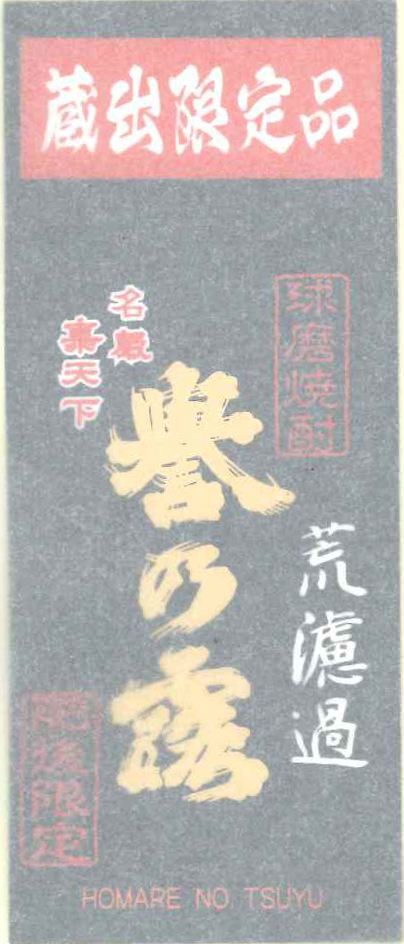 蔵出限定品
球磨焼酎
荒濾過
名聲
轟天下
誉乃露
肥後限定
HOMARE NO TSUYU